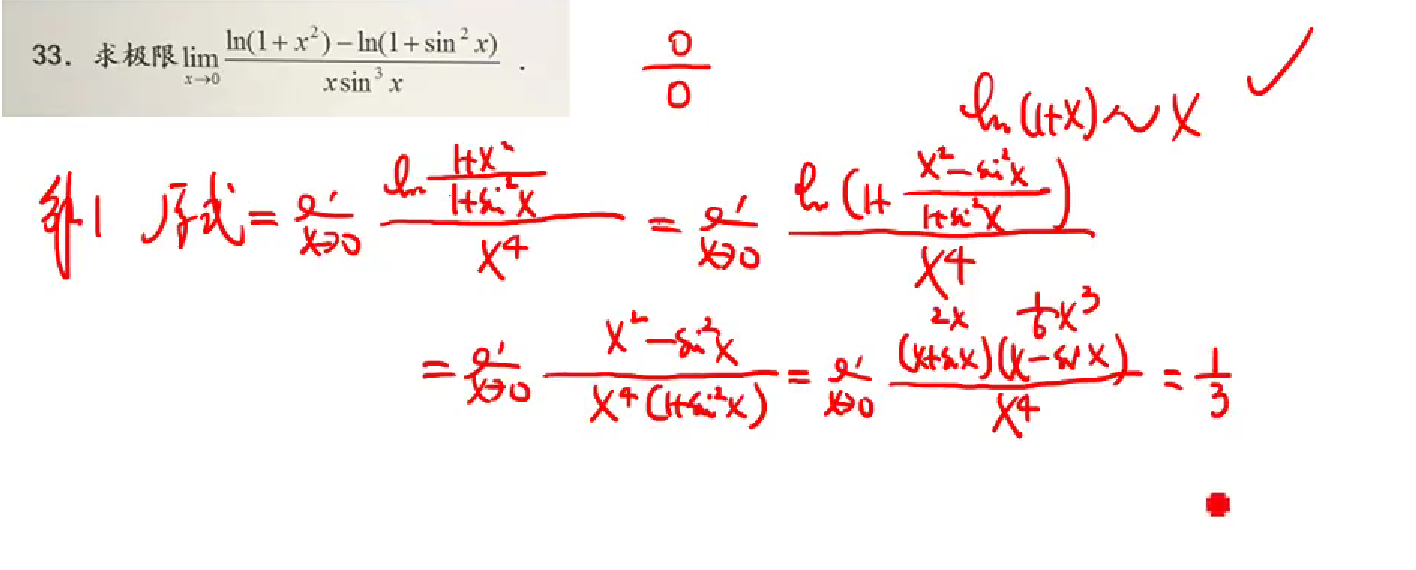 33. 求极限 lim_{x→0} (ln(1+x²)−ln(1+sin²x))/(x sin³x) .
0/0
ln(1+x)~x ✓
解1 原式 = lim_{x→0} (ln((1+x²)/(1+sin²x)))/x⁴ = lim_{x→0} (ln(1+(x²−sin²x)/(1+sin²x)))/x⁴
2x  1/6x³
= lim_{x→0} (x²−sin²x)/(x⁴(1+sin²x)) = lim_{x→0} ((x+sinx)(x−sinx))/x⁴ = 1/3